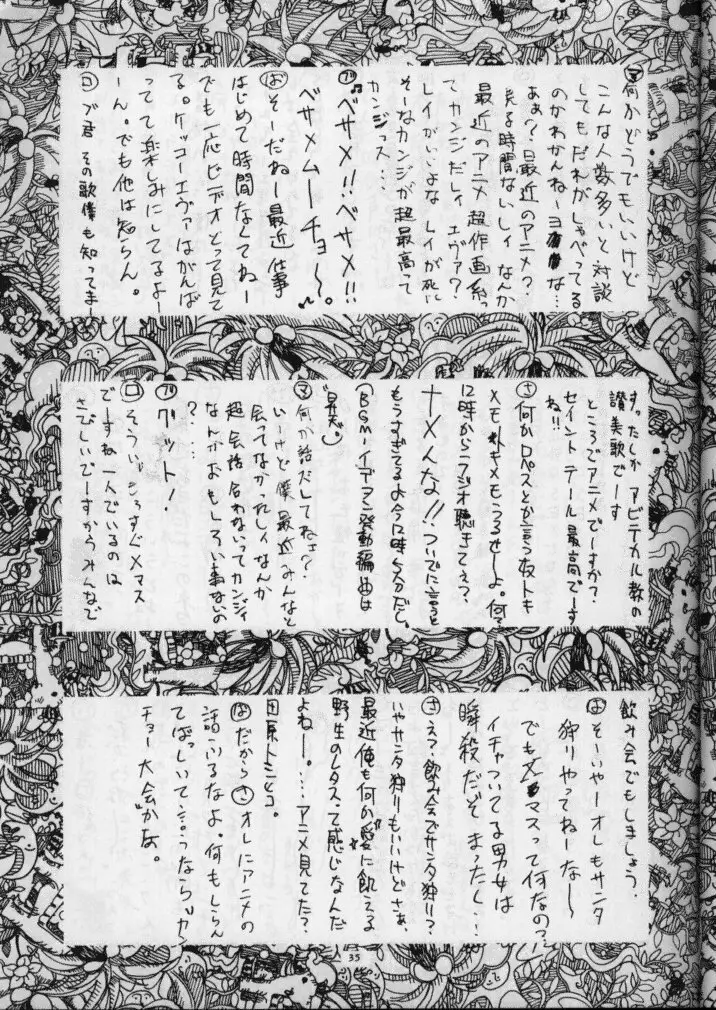 マ 何かどうでもいいけど
こんな人数多いと対談
してもだれがしゃべってる
のかわかんねーヨ な…
あぁ?最近のアニメ?
見る時間ないしィ なんか
最近のアニメ 超作画系
てカンジだしィ エヴァ?
レイがいいよな レイが死に
そーなカンジが超最高て
カンジっス…
ブ ♪ベサメ!!ベサメ!!
ベサメムーチョ〜。♪
ば そーだねー最近仕事
はじめて時間なくてねー
でも一応ビデオとって見て
る。ケッコーエヴァはがんば
ってて楽しみにしてるよー
ーん。でも他は知らん。
ロ ブ君 その歌僕も知ってまー
す。たしか アビデカル教の
讃美歌でーす
ところでアニメでーすか?
セイントテール最高でーす
ね!!
さ 何かロペスとか言う奴トキ
メモトキメモうるせーよ。何?
12時からラジオ聴きてぇ?
ナメんな!!ついでに言うと
もうすぎてるよ今12時5分だし。
(BGM・イデアン発動編曲は
「昇天」)
マ 何か話だしてねェ?
いーけど僕最近みんなと
会ってなかったしィなんか
超会話合わないってカンジィ
なんかおもしろい事ないの
?……
ブ グット!
ロ そういえばもうすぐXマス
ですね一人でいるのは
さびしいでーすからみんなで
飲み会でもしましょう.
ば そーいやーオレもサンタ
狩りやってねーな〜
でもXマスって何なの?
イチャついてる男女は
瞬殺だぞ まったく…!
さ え?飲み会でサンタ狩り?
いやサンタ狩りもいいけどさぁ、
最近俺も何か愛に飢える
野生のレタスって感じなんだ
よねー。…アニメ見てた?
田原トシヒコ。
ば だから さ オレにアニメの
話ふるなよ。何もしらん
てばっしいて…っならリカ
チョー大会かな。
35